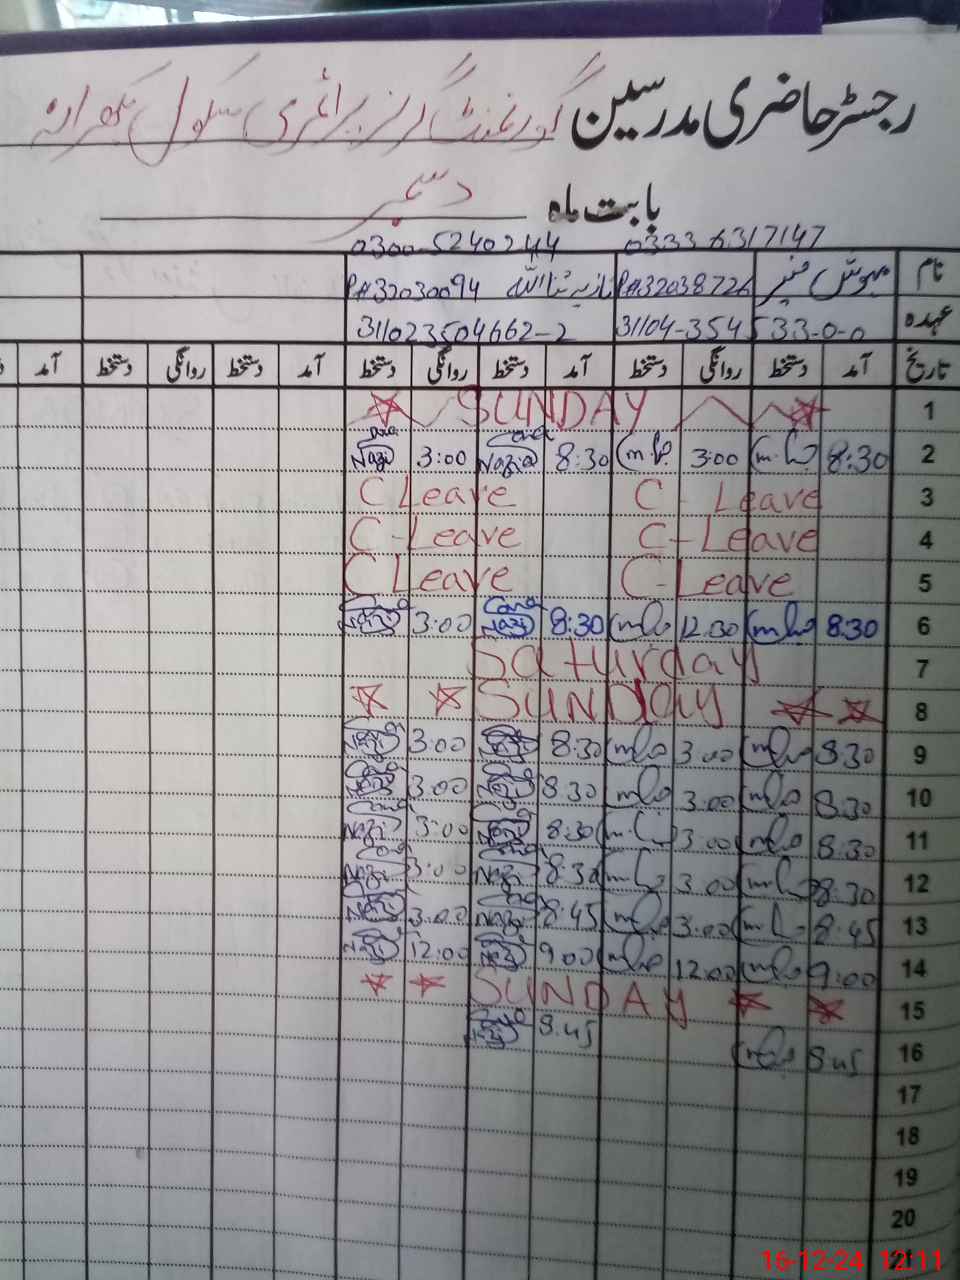 رجسٹر حاضری مدرسین گورنمنٹ گرلز پرائمری سکول
بابت ماہ دسمبر
0333 6317147 0300-5240244
نام مہوش منیر P#32038726 نازیہ ثنااللہ P#32030094
عہدہ 31104-354533-0-0 311023504662-2
تاریخ آمد دستخط روانگی دستخط آمد دستخط روانگی دستخط آمد دستخط روانگی دستخط آمد
1 SUNDAY
2 8:30 3:00 8:30 Nazia 3:00 Nazi
3 C - Leave C Leave
4 C - Leave C - Leave
5 C - Leave C Leave
6 8:30 12:30 8:30 Nazi 3:00 Nazi
7 Saturday
8 SUNDAY
9 8:30 3:00 8:30 3:00 Nazi
10 8:30 3:00 8:30 3:00 Nazi
11 8:30 3:00 8:30 3:00 Nazi
12 8:30 3:00 8:30 Nazi 3:00 Nazi
13 8:45 3:00 8:45 Nazi 3:00 Nazi
14 9:00 12:00 9:00 Nazi 12:00 Nazi
15 SUNDAY
16 8:45 8:45 Nazi
17
18
19
20
21
16-12-24 12:11